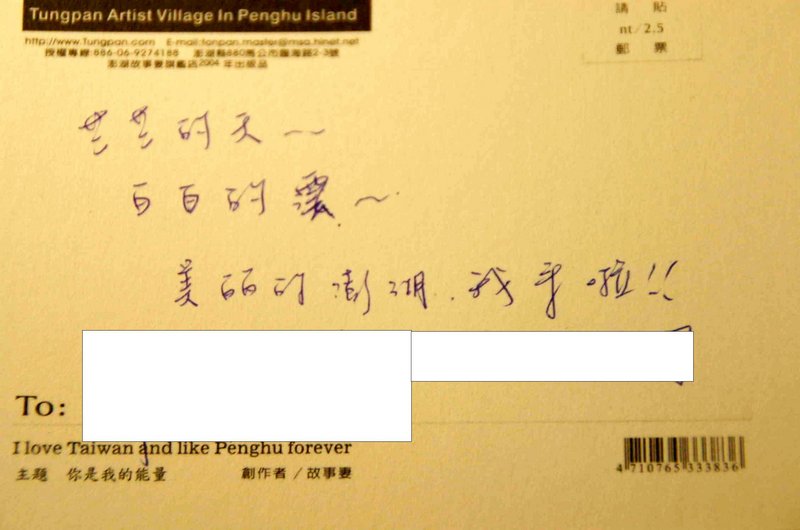 Tungpan Artist Village In Penghu Island
http://www.Tungpan.com E-mail:tonpan.master@msa.hinet.net
授權專線:886-06-9274188 澎湖縣880馬公市臨海路2-3號
澎湖故事妻旗艦店2004 年出版品
請 貼
nt / 2.5
郵 票
的天~
白白的雲~
美丽的澎湖.我来啦!!
To:
I love Taiwan and like Penghu forever
主題 你是我的能量 創作者 / 故事妻
4 710765 333836